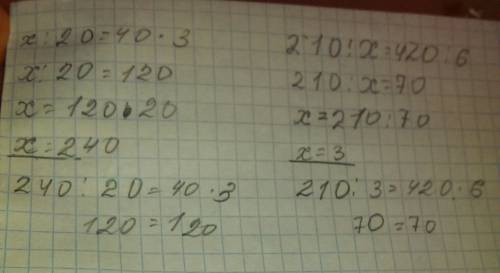 x : 20 = 40 · 3
x : 20 = 120
x = 120 · 20
x = 240
240 : 20 = 40 · 3
120 = 120
210 : x = 420 : 6
210 : x = 70
x = 210 : 70
x = 3
210 : 3 = 420 : 6
70 = 70